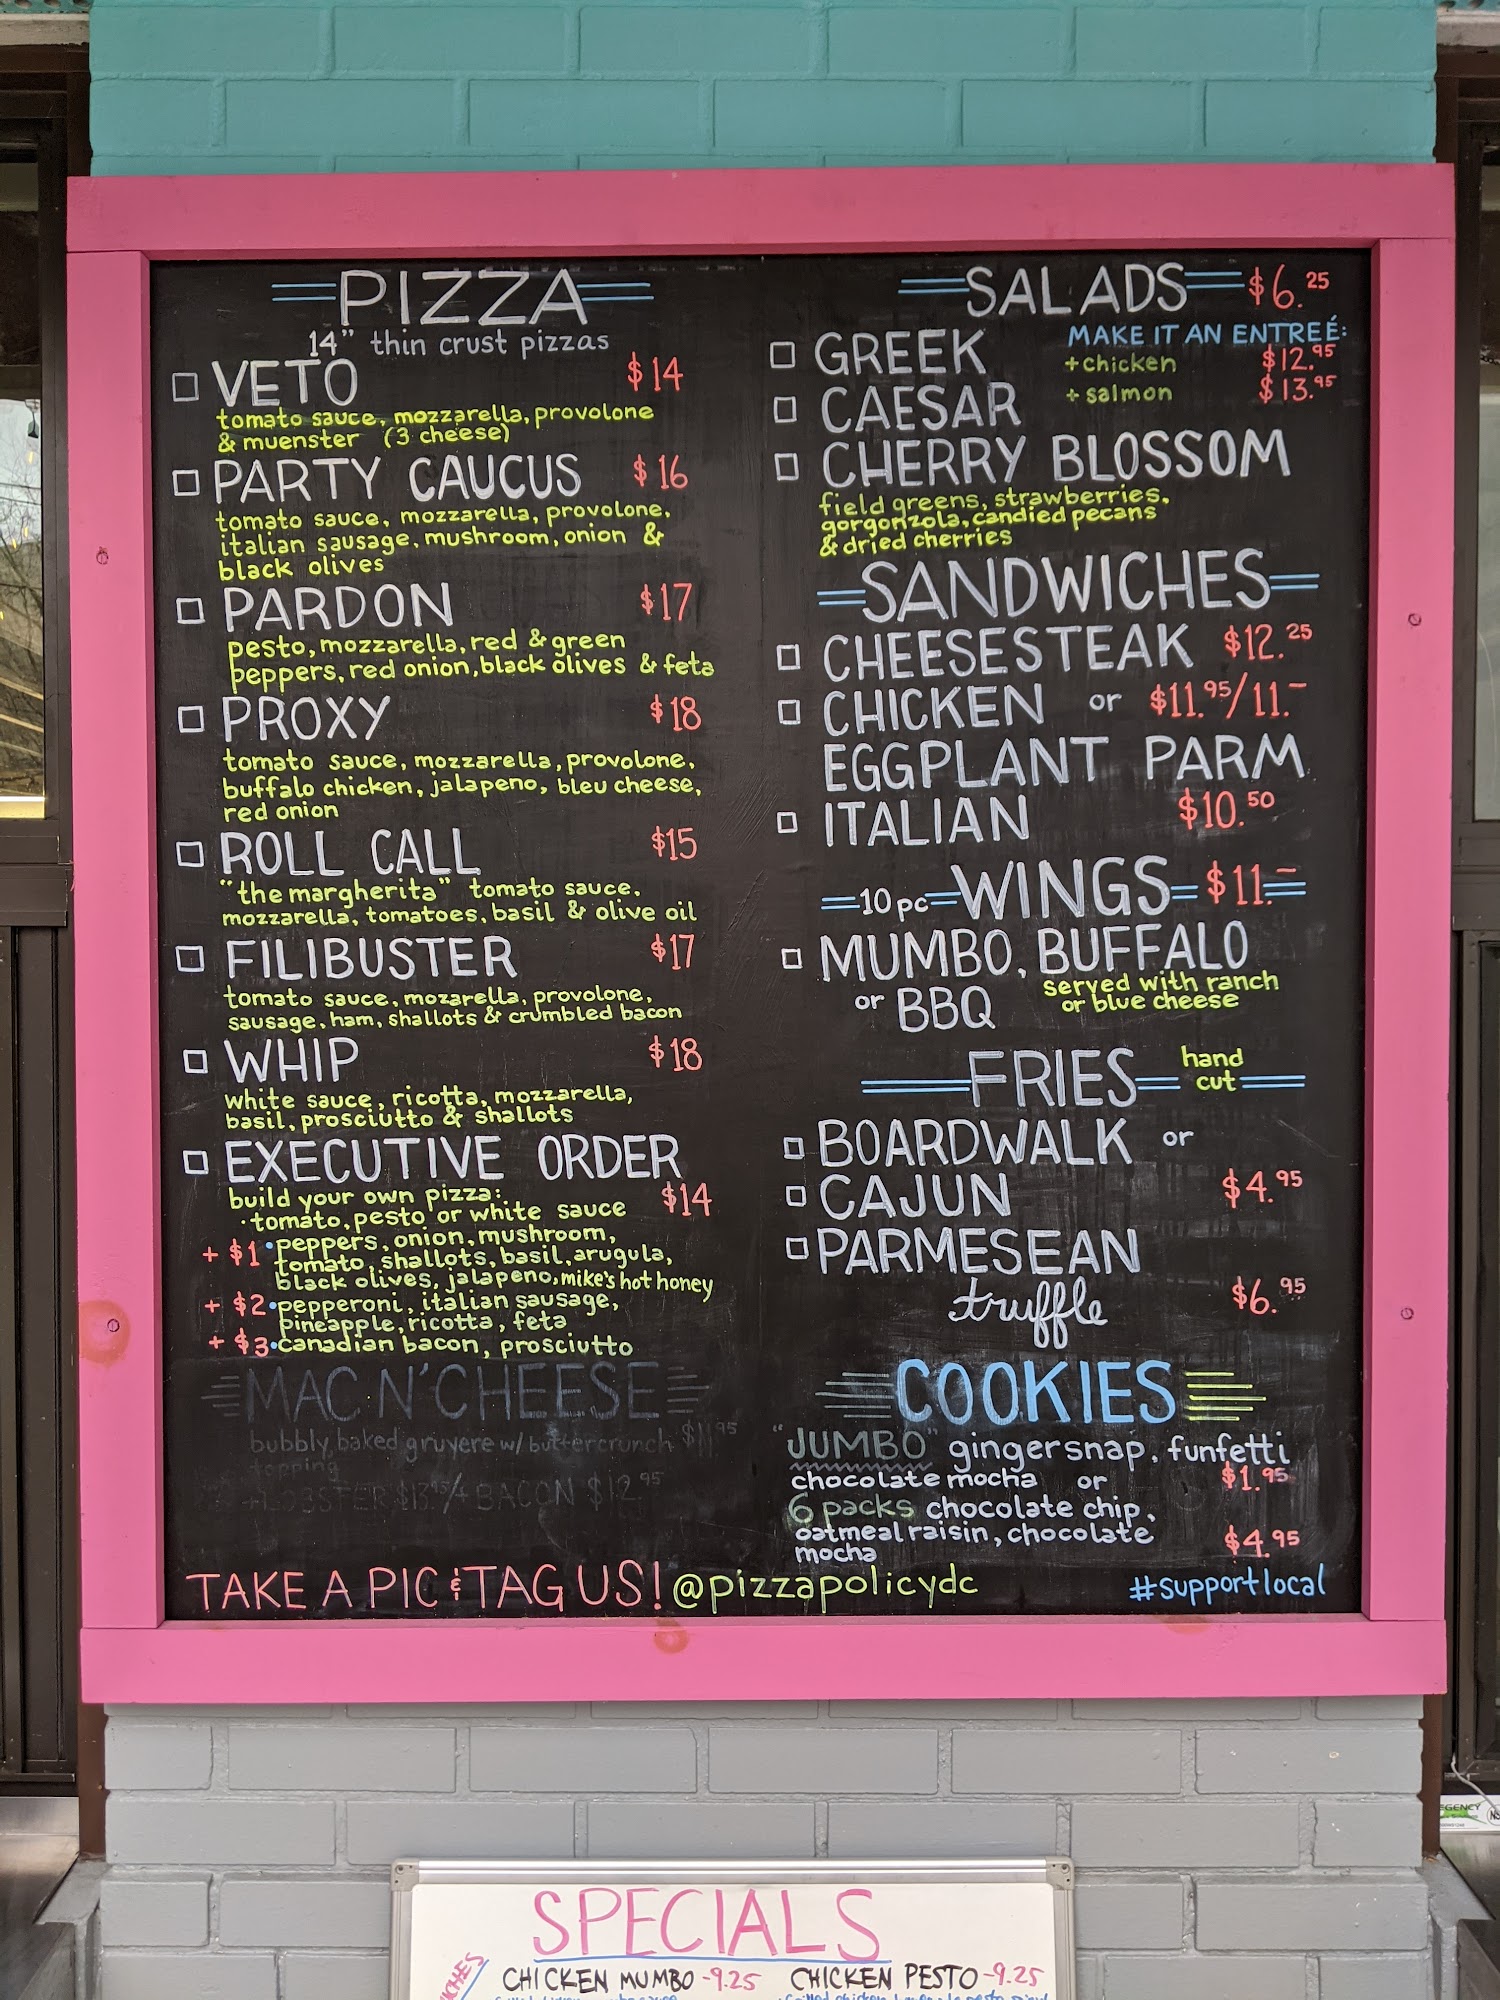 PIZZA
14" thin crust pizzas
VETO $14
tomato sauce, mozzarella, provolone
& muenster (3 cheese)
PARTY CAUCUS $16
tomato sauce, mozzarella, provolone,
italian sausage, mushroom, onion &
black olives
PARDON $17
pesto, mozzarella, red & green
peppers, red onion, black olives & feta
PROXY $18
tomato sauce, mozzarella, provolone,
buffalo chicken, jalapeno, bleu cheese,
red onion
ROLL CALL $15
"the margherita" tomato sauce,
mozzarella, tomatoes, basil & olive oil
FILIBUSTER $17
tomato sauce, mozarella, provolone,
sausage, ham, shallots & crumbled bacon
WHIP $18
white sauce, ricotta, mozzarella,
basil, prosciutto & shallots
EXECUTIVE ORDER
build your own pizza: $14
• tomato, pesto or white sauce
+ $1 • peppers, onion, mushroom,
tomato, shallots, basil, arugula,
black olives, jalapeno, mike's hot honey
+ $2 • pepperoni, italian sausage,
pineapple, ricotta, feta
+ $3 • canadian bacon, prosciutto
MAC N' CHEESE
bubbly, baked gruyere w/ buttercrunch $11.95
topping
+LOBSTER $13.95/+ BACON $12.95
SALADS $6.25
MAKE IT AN ENTREÉ:
+ chicken $12.95
+ salmon $13.95
GREEK
CAESAR
CHERRY BLOSSOM
field greens, strawberries,
gorgonzola, candied pecans
& dried cherries
SANDWICHES
CHEESESTEAK $12.25
CHICKEN or $11.95/11.–
EGGPLANT PARM
ITALIAN $10.50
10 pc WINGS $11.–
MUMBO, BUFFALO
or BBQ served with ranch
or blue cheese
FRIES hand
cut
BOARDWALK or
CAJUN $4.95
PARMESEAN
truffle $6.95
COOKIES
"JUMBO" gingersnap, funfetti
chocolate mocha or $1.95
6 packs chocolate chip,
oatmeal raisin, chocolate $4.95
mocha
TAKE A PIC & TAG US! @pizzapolicydc #supportlocal
SPECIALS
CHICKEN MUMBO -9.25 CHICKEN PESTO -9.25